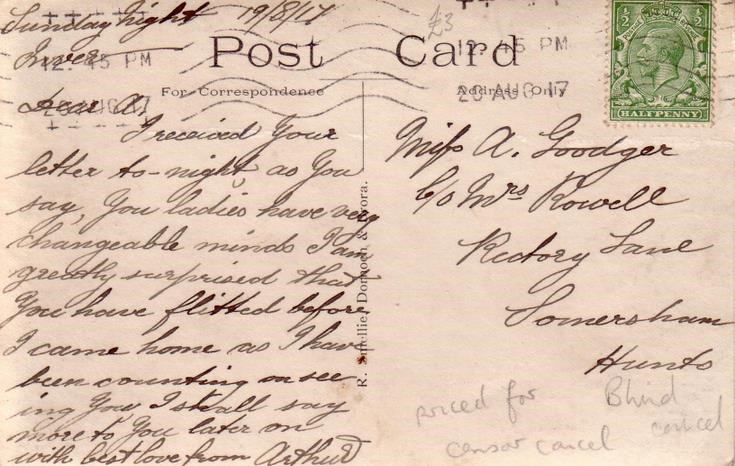 Sunday night 19/8/17
£3
Post Card
12. 45 PM
12. 45 PM
20 AUG 17
For Correspondence
Address Only
½ ½
HALFPENNY
Dear A,
I received Your
letter to-night, as You
say, You ladies have very
changeable minds I am
greatly surprised that
You have flitted before
I came home as I have
been counting on see
ing You, I shall say
more to You later on
with best love from Arthur
Miss A. Goodger
c/o Mrs Rowell
Rectory Lane
Somersham
Hunts
priced for
censor cancel
Blind
cancel